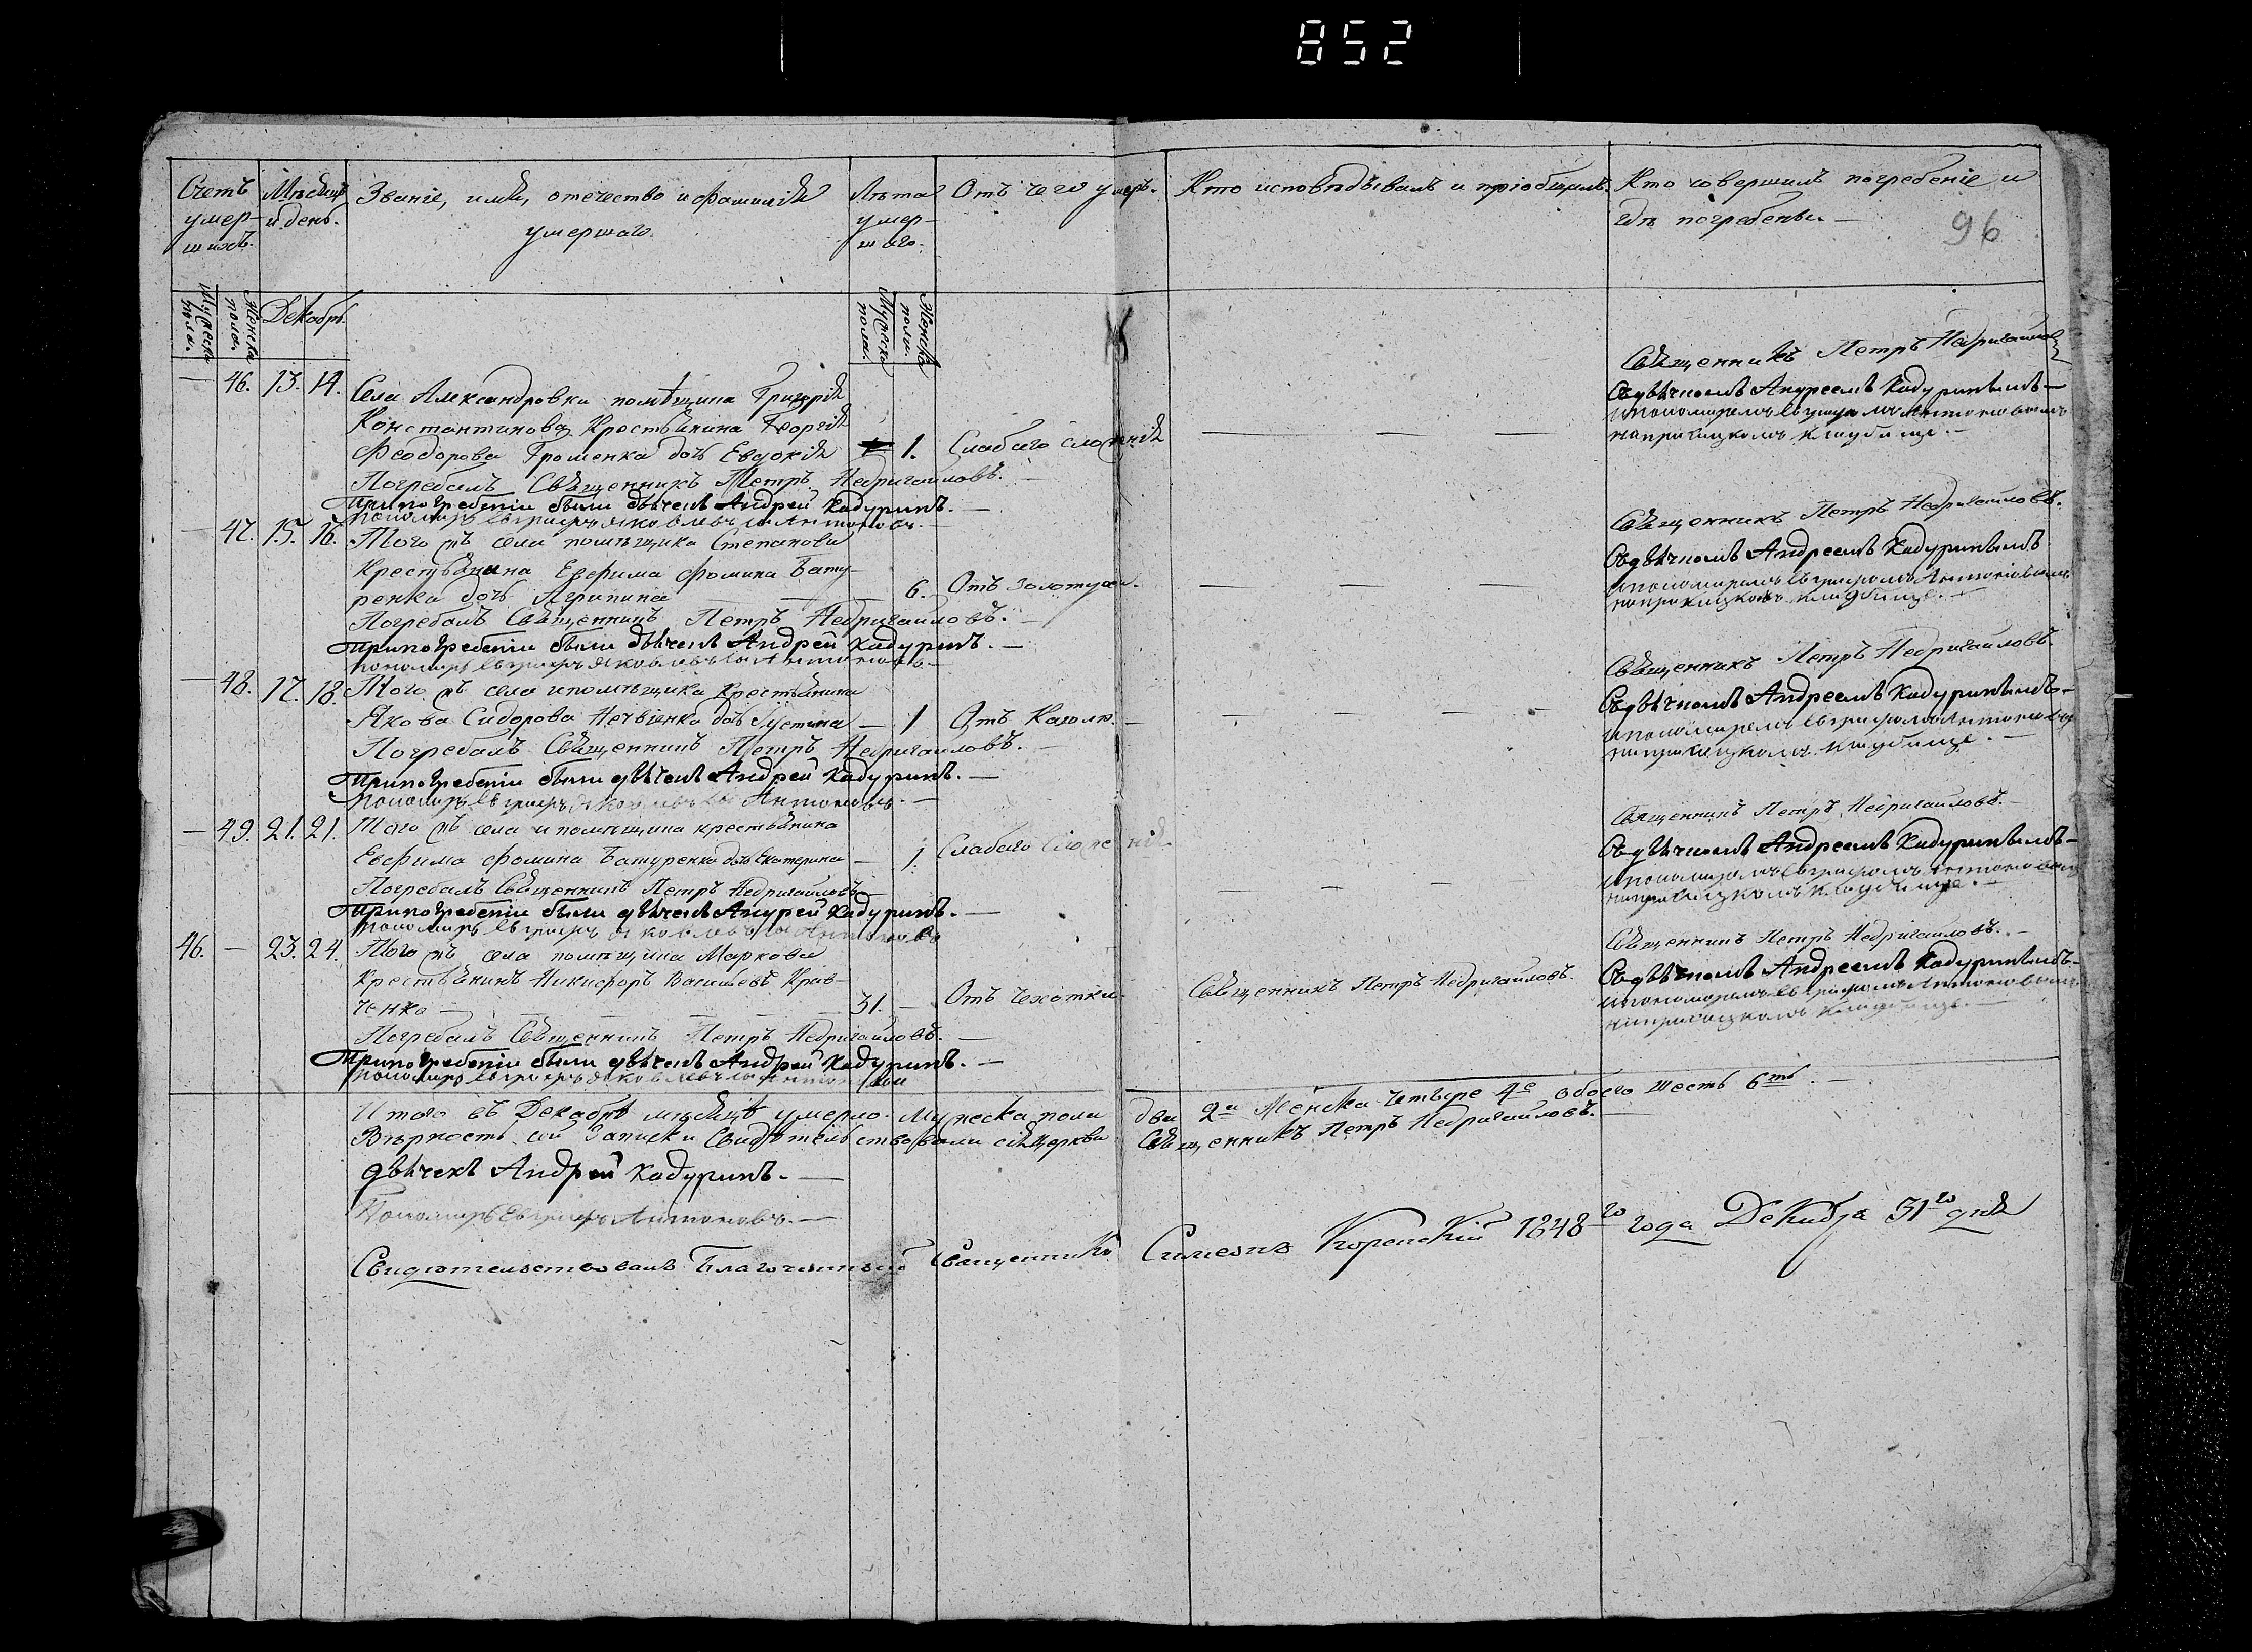 852
96
Счетъ умер-шихъ.
Мѣсяцъ и день.
Званіе, имя, отечество и фамилія умершаго.
Лѣта умер-шаго.
Отъ чего умеръ.
Кто исповѣдывалъ и пріобщилъ.
Кто совершилъ погребеніе и гдѣ погребены. —
Мужеска пола.
Женска пола.
Декабрь.
Мужеска пола.
Женска пола.
— 46. 13. 14.
Села Александровки помѣщика Григорія
Константинова Крестьянина Георгія
Феодорова Громенка дочь Евдокія 1. Слабаго сложенія — — —
Погребалъ Священникъ Петръ Недригайловъ. —
При погребеніи были дьячекъ Андрей Кадуринъ. —
пономарь Евграфъ Яковлевъ Антоновъ. —
Священникъ Петръ Недригайловъ
Съ дьячкомъ Андреемъ Кадуринымъ —
и пономаремъ Евграфомъ Антоновымъ
на приходскомъ кладбище. —
— 47. 15. 16.
Того жъ села помѣщика Степанова
Крестьянина Евфима Фомина Бату-
ренка дочь Агрипина — — — 6. Отъ золотухи. — — —
Погребалъ Священникъ Петръ Недригайловъ. —
При погребеніи были дьячекъ Андрей Кадуринъ. —
пономарь Евграфъ Яковлевъ Антоновъ. —
Священникъ Петръ Недригайловъ.
Съ дьячкомъ Андреемъ Кадуринымъ
и пономаремъ Евграфомъ Антоновымъ
на приходскомъ кладбище. —
— 48. 17. 18.
Того жъ села и помѣщика Крестьянина
Якова Сидорова дочь Устина — 1 Отъ Кашлю. — — — —
Погребалъ Священникъ Петръ Недригайловъ. —
При погребеніи были дьячекъ Андрей Кадуринъ. —
пономарь Евграфъ Яковлевъ Антоновъ. —
Священникъ Петръ Недригайловъ.
Съ дьячкомъ Андреемъ Кадуринымъ —
и пономаремъ Евграфомъ Антоновымъ
на приходскомъ кладбище. —
— 49. 21. 21.
Того жъ села и помѣщика крестьянина
Евфима Фомина Батуренка дочь Екатерина — 1. Слабаго сложенія — — —
Погребалъ Священникъ Петръ Недригайловъ —
При погребеніи были дьячекъ Андрей Кадуринъ. —
пономарь Евграфъ Яковлевъ Антоновъ
Священникъ Петръ Недригайловъ. —
Съ дьячкомъ Андреемъ Кадуринымъ —
и пономаремъ Евграфомъ Антоновымъ
на приходскомъ кладбище. —
46. — 23. 24.
Того жъ села помѣщика Маркова
Крестьянинъ Никифоръ Васильевъ Крав-
ченко — — — — 31. — Отъ чехотки. Священникъ Петръ Недригайловъ.
Погребалъ Священникъ Петръ Недригайловъ. —
При погребеніи были дьячекъ Андрей Кадуринъ. —
пономарь Евграфъ Яковлевъ Антоновъ
Священникъ Петръ Недригайловъ. —
Съ дьячкомъ Андреемъ Кадуринымъ —
и пономаремъ Евграфомъ Антоновымъ
на приходскомъ кладбище. —
Итого въ Декабрѣ мѣсяцѣ умерло. Мужеска пола два 2а Женска четыре 4е обоего шесть 6ть. —
Вѣрность сей Записки Свидѣтельствовали сей Церкви Священникъ Петръ Недригайловъ. —
дьячекъ Андрей Кадуринъ. —
Пономарь Евграфъ Антоновъ. —
Свидѣтельствовалъ Благочинный Священникъ Симеонъ 1848го года Декабря 31го дня